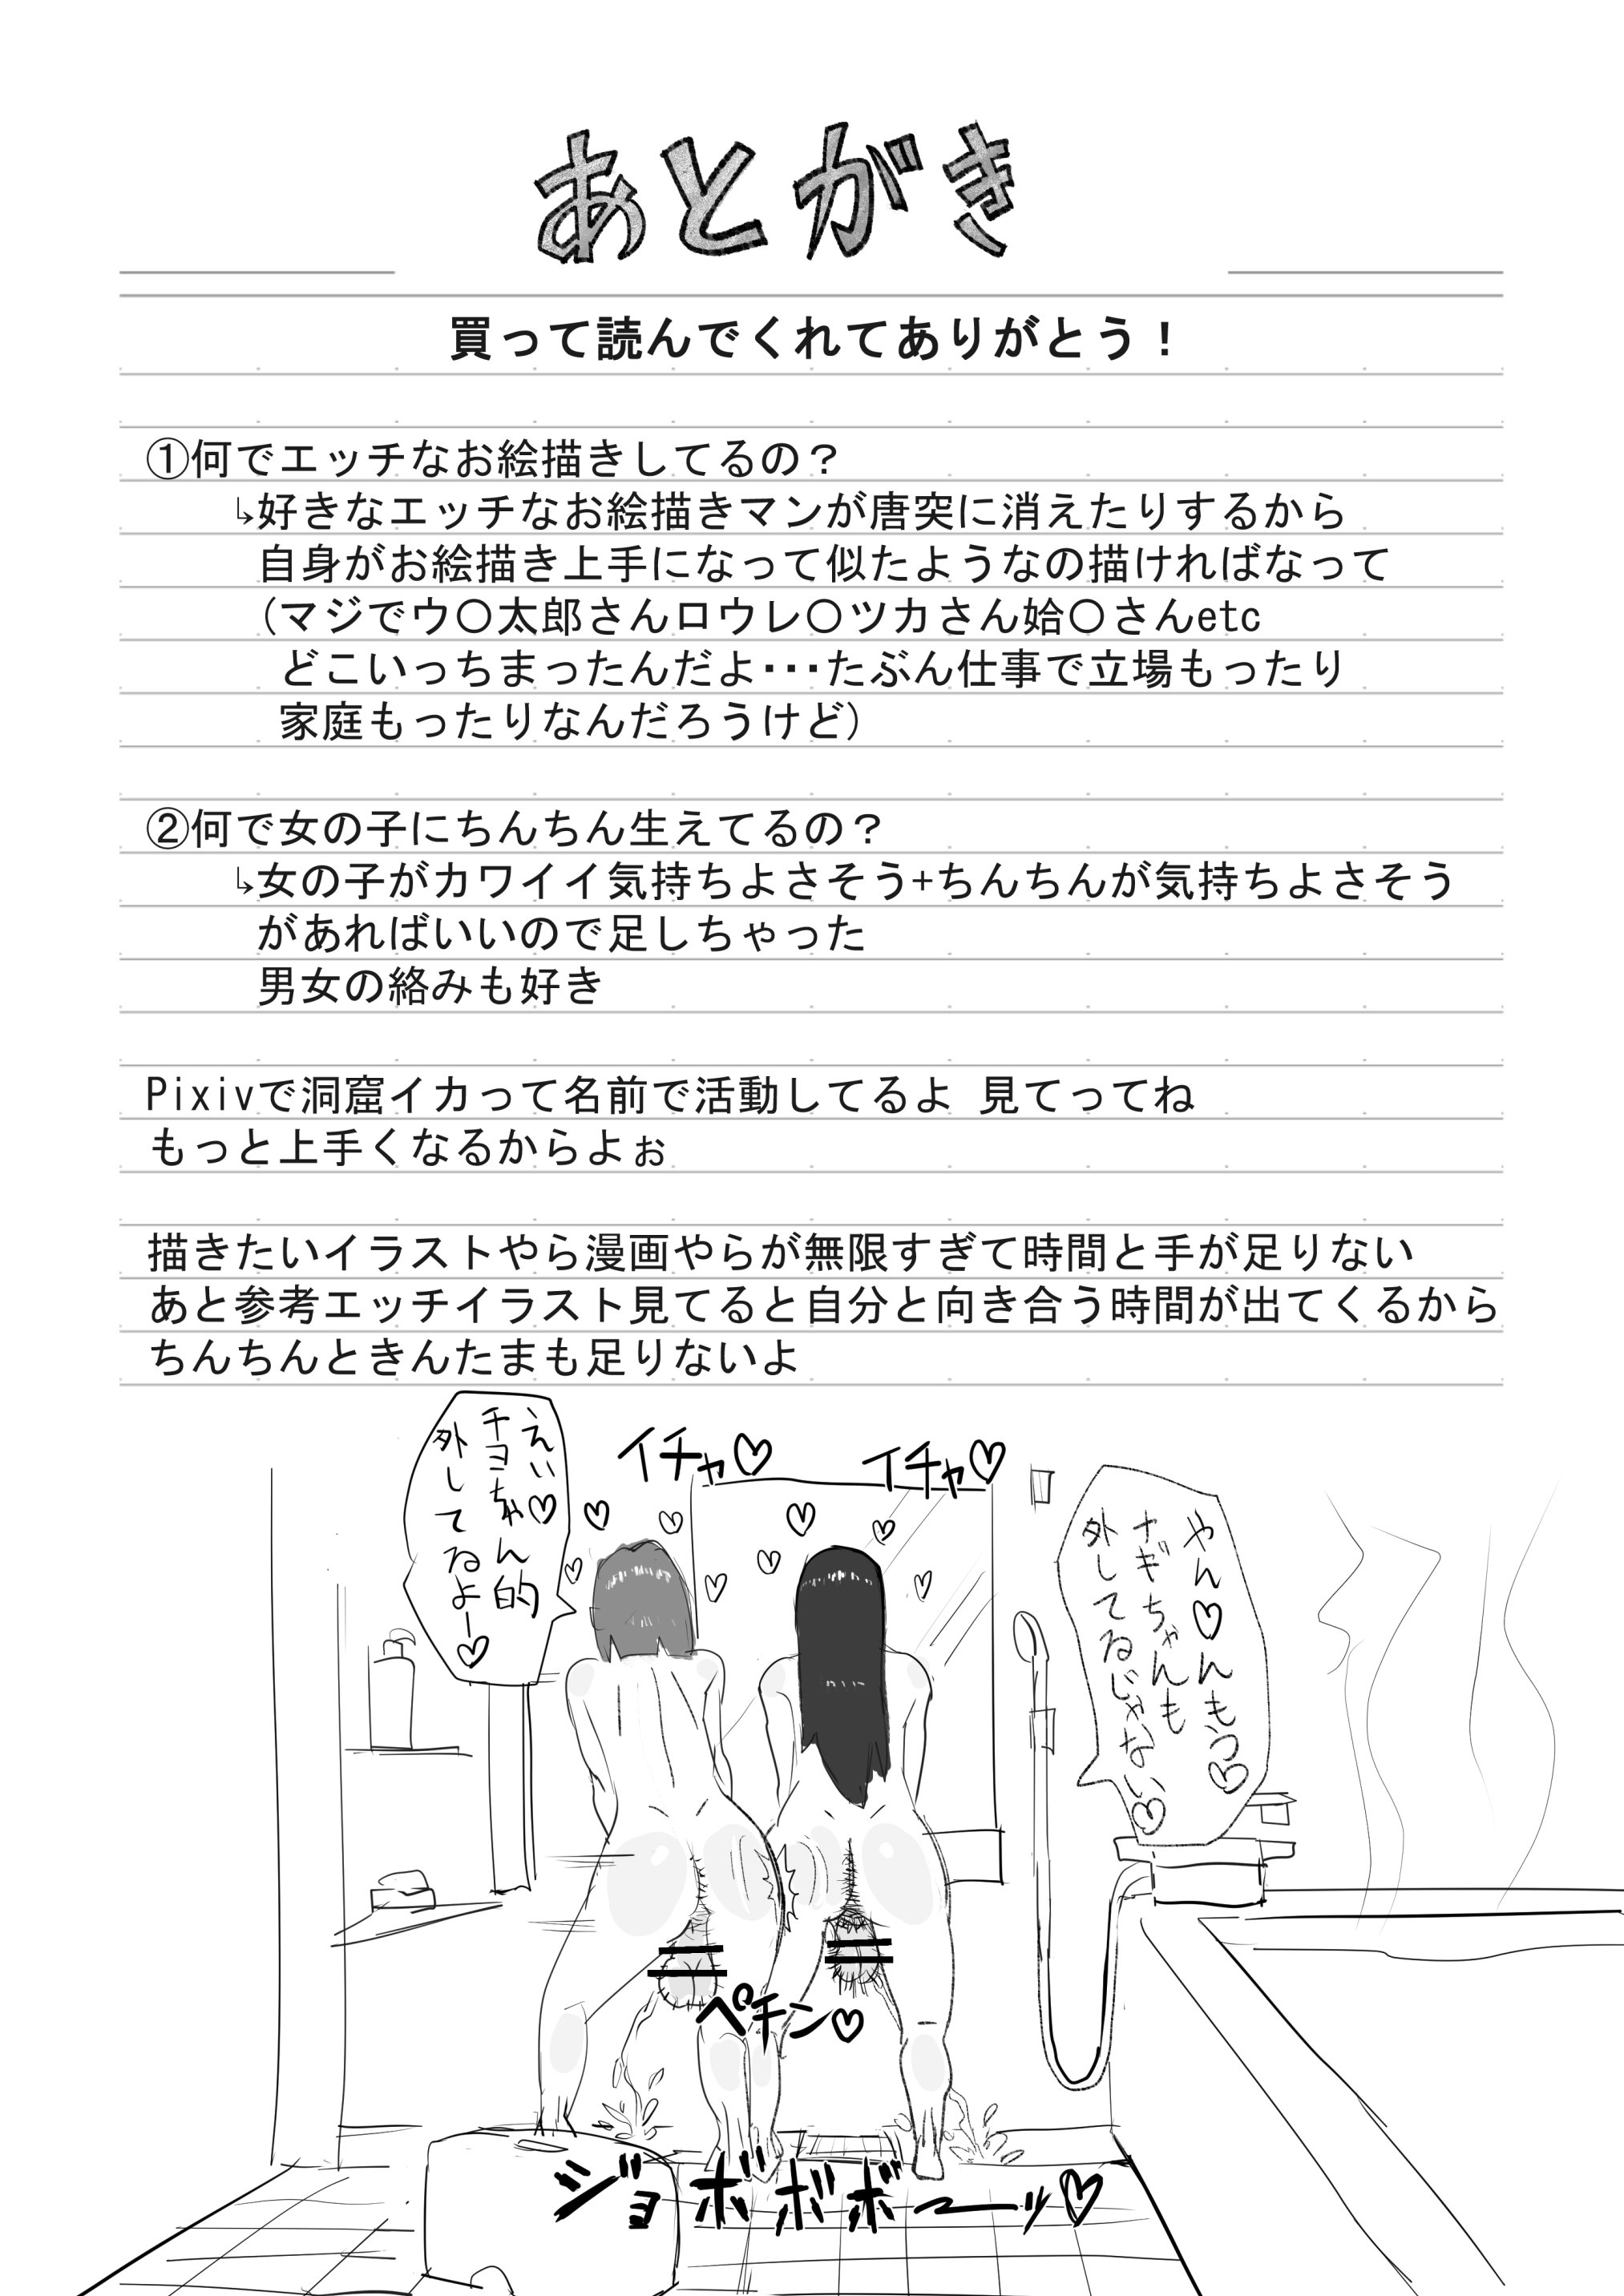 あとがき
買って読んでくれてありがとう！
①何でエッチなお絵描きしてるの？
↳好きなエッチなお絵描きマンが唐突に消えたりするから
自身がお絵描き上手になって似たようなの描ければなって
(マジでウ〇太郎さんロウレ〇ツカさん始〇さんetc
どこいっちまったんだよ･･･たぶん仕事で立場もったり
家庭もったりなんだろうけど)
②何で女の子にちんちん生えてるの？
↳女の子がカワイイ気持ちよさそう+ちんちんが気持ちよさそう
があればいいので足しちゃった
男女の絡みも好き
Pixivで洞窟イカって名前で活動してるよ 見てってね
もっと上手くなるからよぉ
描きたいイラストやら漫画やらが無限すぎて時間と手が足りない
あと参考エッチイラスト見てると自分と向き合う時間が出てくるから
ちんちんときんたまも足りないよ
えい♡
チヨちゃん的
外してるよー♡
イチャ♡
イチャ♡
やん♡んもう♡
ナギちゃんも
外してるじゃない♡
ペチン♡
ジョボボボーッ♡